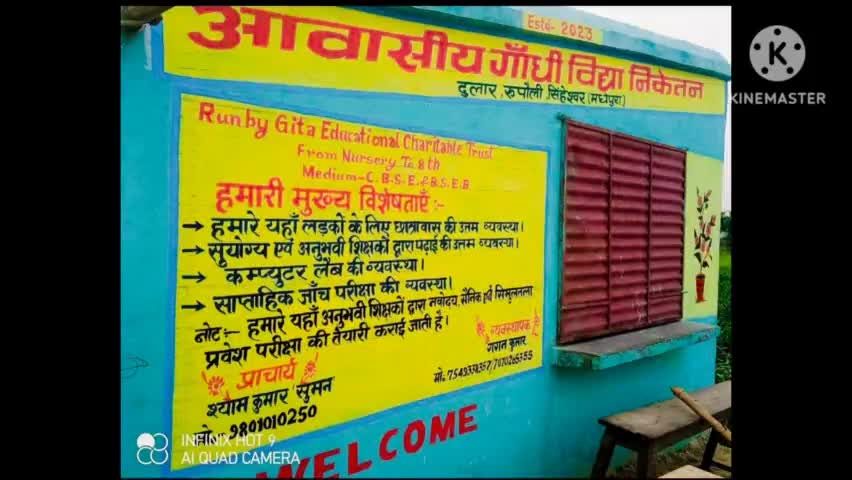 Estd- 2023
आवासीय गाँधी विद्या निकेतन
दुलार, रुपौली, सिंहेश्वर (मधेपुरा)
Run by Gita Educational Charitable Trust
From Nursery To 8th
Medium-C.B.S.E & B.S.E.B
हमारी मुख्य विशेषताएँ :-
→ हमारे यहाँ लड़कों के लिए छात्रावास की उत्तम व्यवस्था।
→ सुयोग्य एवं अनुभवी शिक्षकों द्वारा पढ़ाई की उत्तम व्यवस्था।
→ कम्प्युटर लैब की व्यवस्था।
→ साप्ताहिक जाँच परीक्षा की व्यवस्था।
नोट:- हमारे यहाँ अनुभवी शिक्षकों द्वारा नवोदय, सैनिक एवं सिमुलतला
प्रवेश परीक्षा की तैयारी कराई जाती है।
प्राचार्य
श्याम कुमार 'सुमन'
मो.- 9801010250
व्यवस्थापक
गगन कुमार
WELCOME
INFINIX HOT 9
AI QUAD CAMERA
K
KINEMASTER